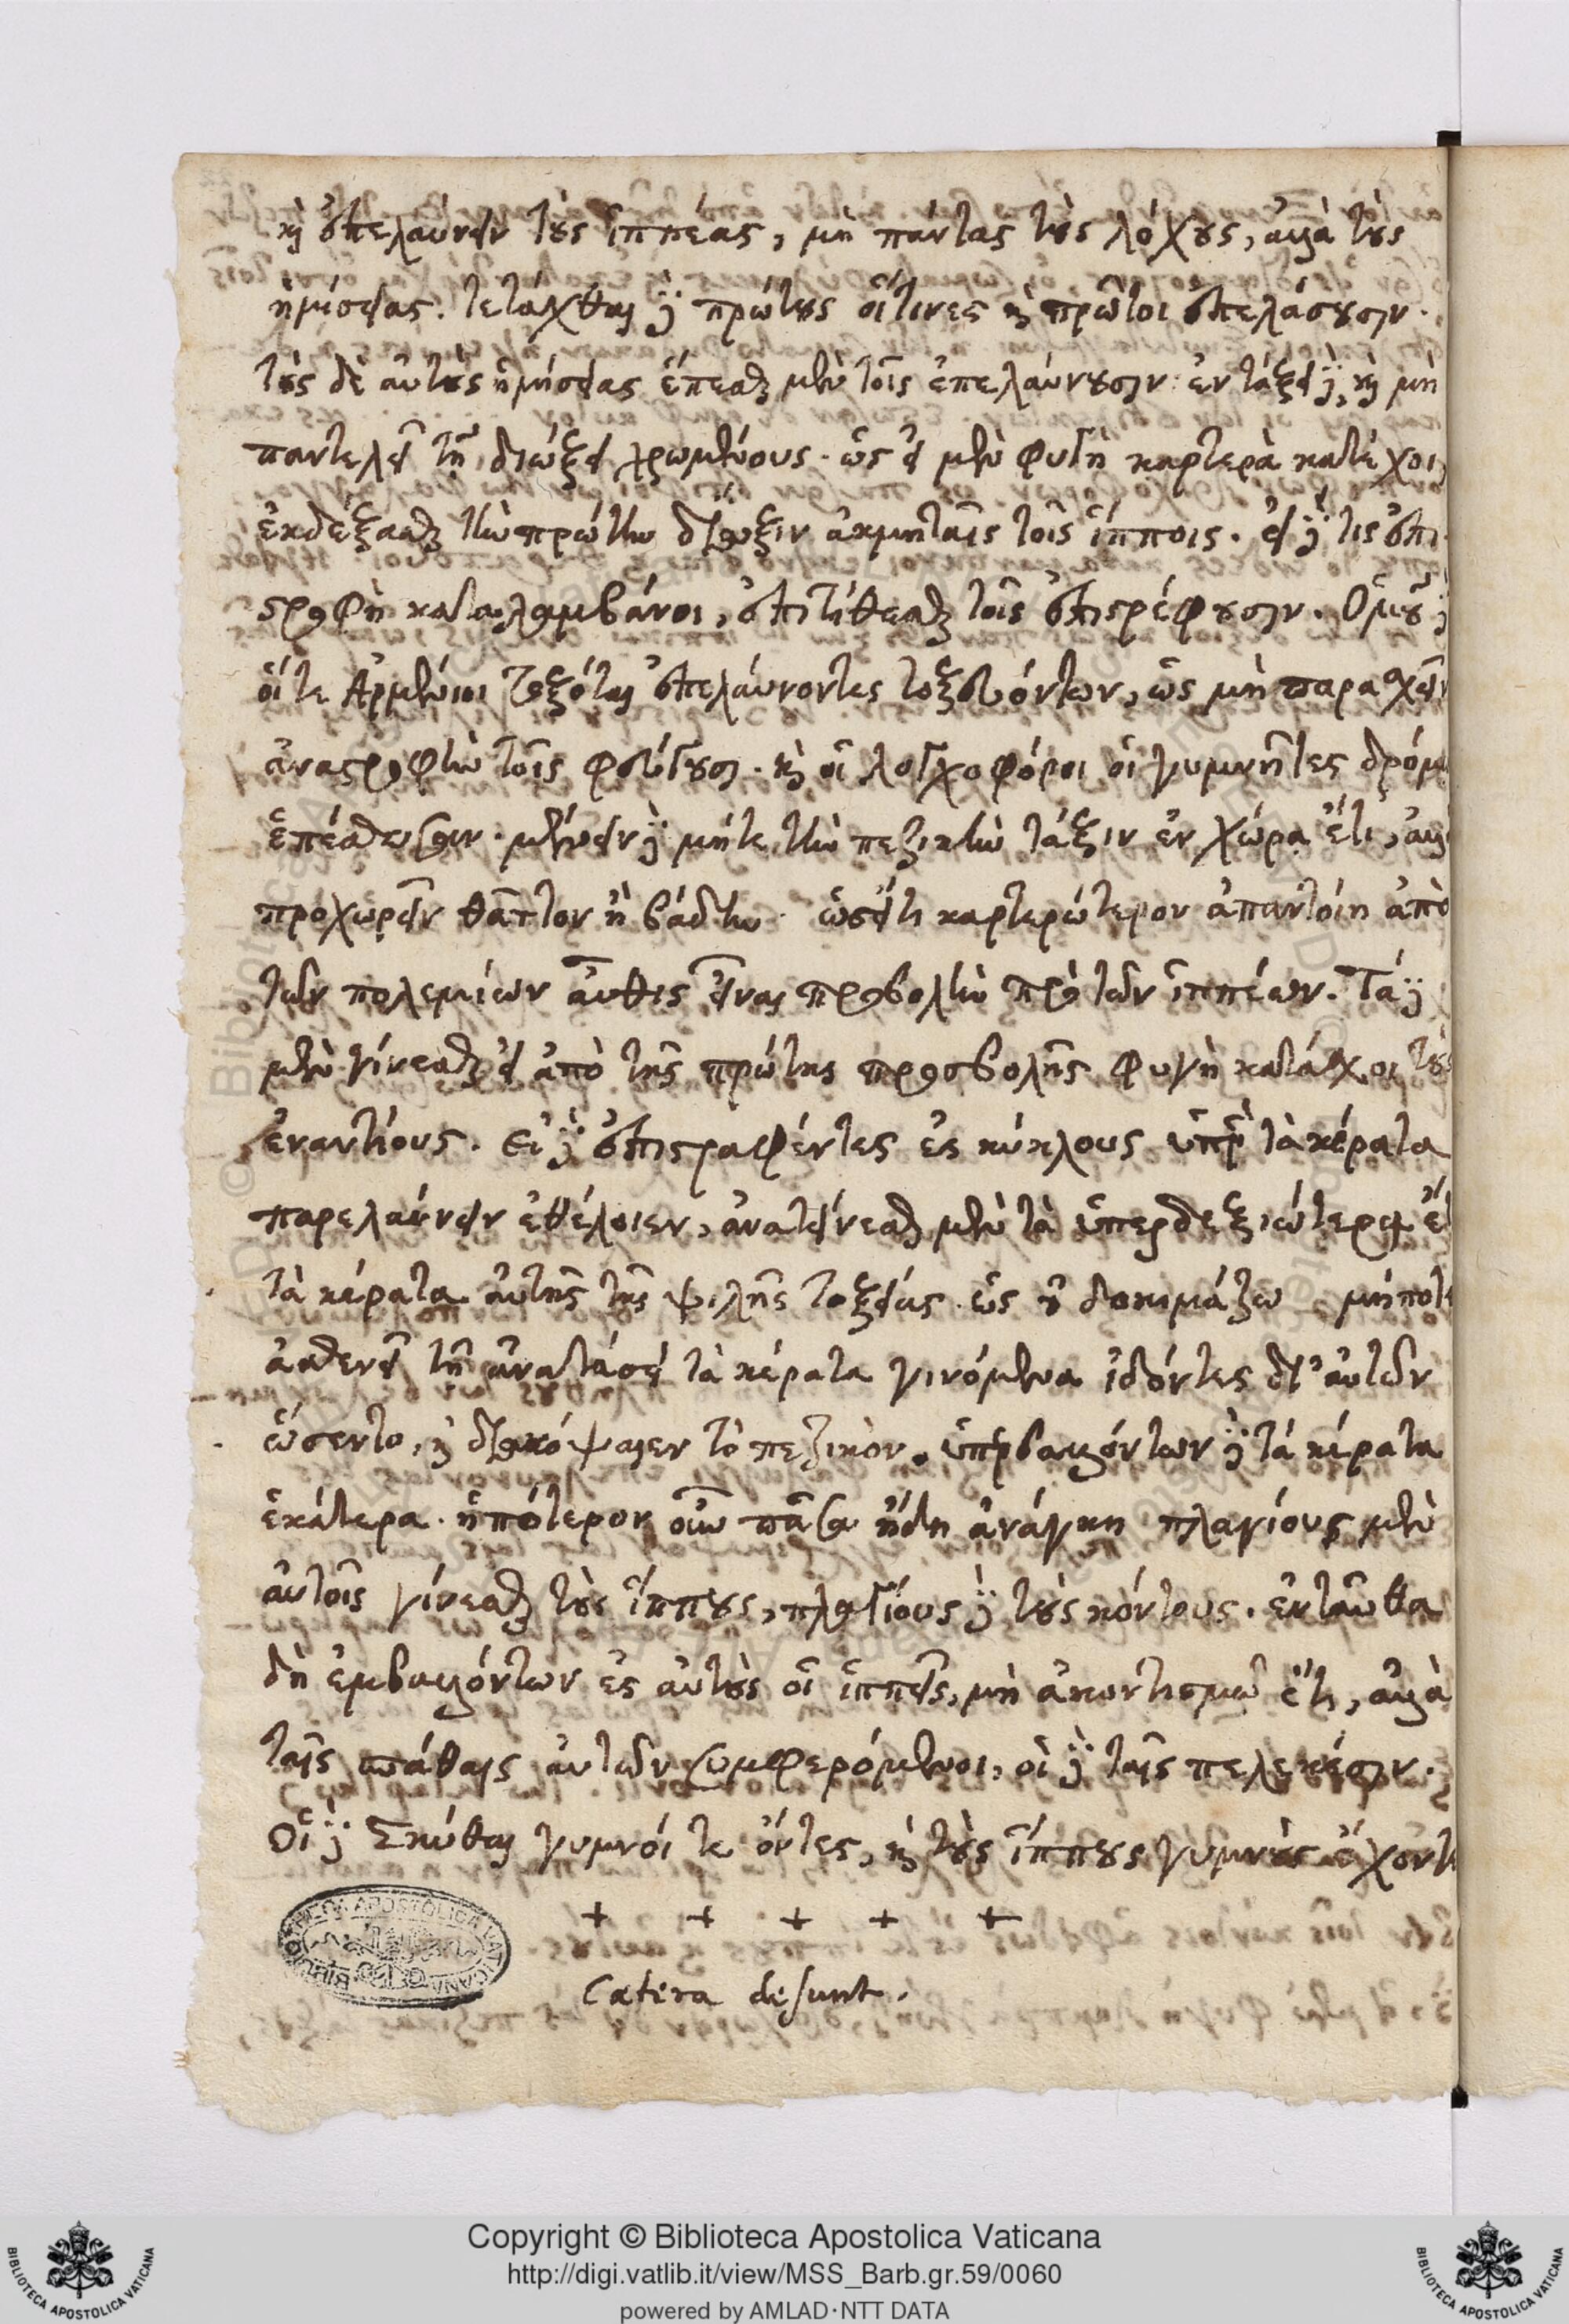 καὶ ἐπελαύνειν τοὺς ἱππέας, μὴ πάντας τοὺς λόχους, ἀλλὰ τοὺς
ἡμίσεας. τετάχθαι δὲ πρώτους οἵτινες καὶ πρῶτοι ἐπελάσουσιν.
τοὺς δὲ αὐτοὺς ἡμίσεας ἕπεσθαι μὲν τοῖς ἐπελαύνουσιν· ἐν τάξει δὲ, καὶ μὴ
παντελεῖ τῇ διώξει χρωμένους. ὡς εἰ μὲν φυγὴ καρτερὰ κατέχοι,
ἐκδέξασθαι τὴν πρώτην δίωξιν ἀκμηταῖς τοῖς ἵπποις. εἰ δὲ τις ἐπι
στροφὴ καταλαμβάνοι, ἐπιτίθεσθαι τοῖς ἐπιστρέφουσιν. Ὁμοῦ δὲ
οἵ τε Ἀρμένιοι τοξόται ἐπελαύνοντες τοξευόντων, ὡς μὴ παρασχεῖν
ἀναστροφὴν τοῖς φεύγουσι. καὶ οἱ λογχοφόροι οἱ γυμνῆτες δρόμ
ἑπέσθωσαν. μένειν δὲ μήτε τὴν πεζικὴν τάξιν ἐν χώρᾳ ἔτι, ἀλλ
προχωρεῖν θᾶττον ἢ βάδην. ὡς εἴ τι καρτερώτερον ἀπαντοίη ἀπὸ
τῶν πολεμίων αὖθις εἶναι προβολὴν πρὸ τῶν ἱππέων. Τὰ δὲ
μὲν γίνεσθαι εἰ ἀπὸ τῆς πρώτης προσβολῆς φυγὴ κατάσχοι τοὺς
ἐναντίους. Εἰ δὲ ἐπιστραφέντες ἐς κύκλους ὑπὲρ τὰ κέρατα
παρελαύνειν ἐθέλοιεν, ἀνατείνεσθαι μὲν τὰ ὑπερδεξιώτερα ἔτ
τὰ κέρατα αὐτῆς τῆς ψιλῆς τοξείας. ὡς οὐ δοκιμάζω μήποτε
ἀσθενεῖ τῇ ἀναστάσει τὰ κέρατα γινόμενα ἰδόντες δι' αὐτῶν
ὤσεντο, καὶ διακόψαιεν τὸ πεζικόν. ὑπερβαλλόντων δὲ τὰ κέρατα
ἑκάτερα. ἢ πότερον οὖν πᾶσα ἤδη ἀνάγκη πλαγίους μὲν
αὐτοῖς γίνεσθαι τοὺς ἵππους, πλαγίους δὲ τοὺς κόντους. ἐνταῦθα
δὴ ἐμβαλλόντων ἐς αὐτοὺς οἱ ἱππεῖς, μὴ ἀκοντισμῷ ἔτι, ἀλλὰ
ταῖς σπάθαις αὐτῶν συμφερόμενοι, οἱ δὲ ταῖς πελεκέσιν.
Οἱ δὲ Σκύθαι γυμνοί τε ὄντες, καὶ τοὺς ἵππους γυμνοὺς ἔχοντε
+ + + + +
Cætera desunt.
Copyright © Biblioteca Apostolica Vaticana
http://digi.vatlib.it/view/MSS_Barb.gr.59/0060
powered by AMLAD·NTT DATA
BIBLIOTECA APOSTOLICA VATICANA
BIBLIOTECA APOSTOLICA VATICANA